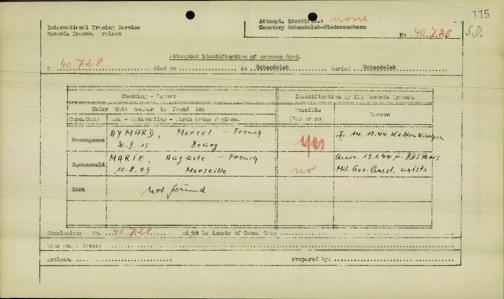 115
International Tracing Service
Records Branch. Arolsen
Attempt. identific: none
Cemetery Schandelah-Niedersachsen
No 40.728
S.D.
Attempted identification of unknown dead.
No 40.728 died on in Schandelah buried Schandelah
Checking - Report
Identification by ITS Records Branch.
Under this number is found in:
Possible
(Yes or no)
Reason
Conc.Camp
Name - Nationality - Birth date & place.
Neuengamme
AYMARD, Marcel - French
30.9.15 Bourg
Yes
Buchenwald
MARIE, Auguste - French
10.8.09 Marseille
no
Mil. Gov. Quest. exists
Dora
not found
Conclusion: No. 40 728 might be inmate of Conc. Camp
Arolsen, Prepared by: